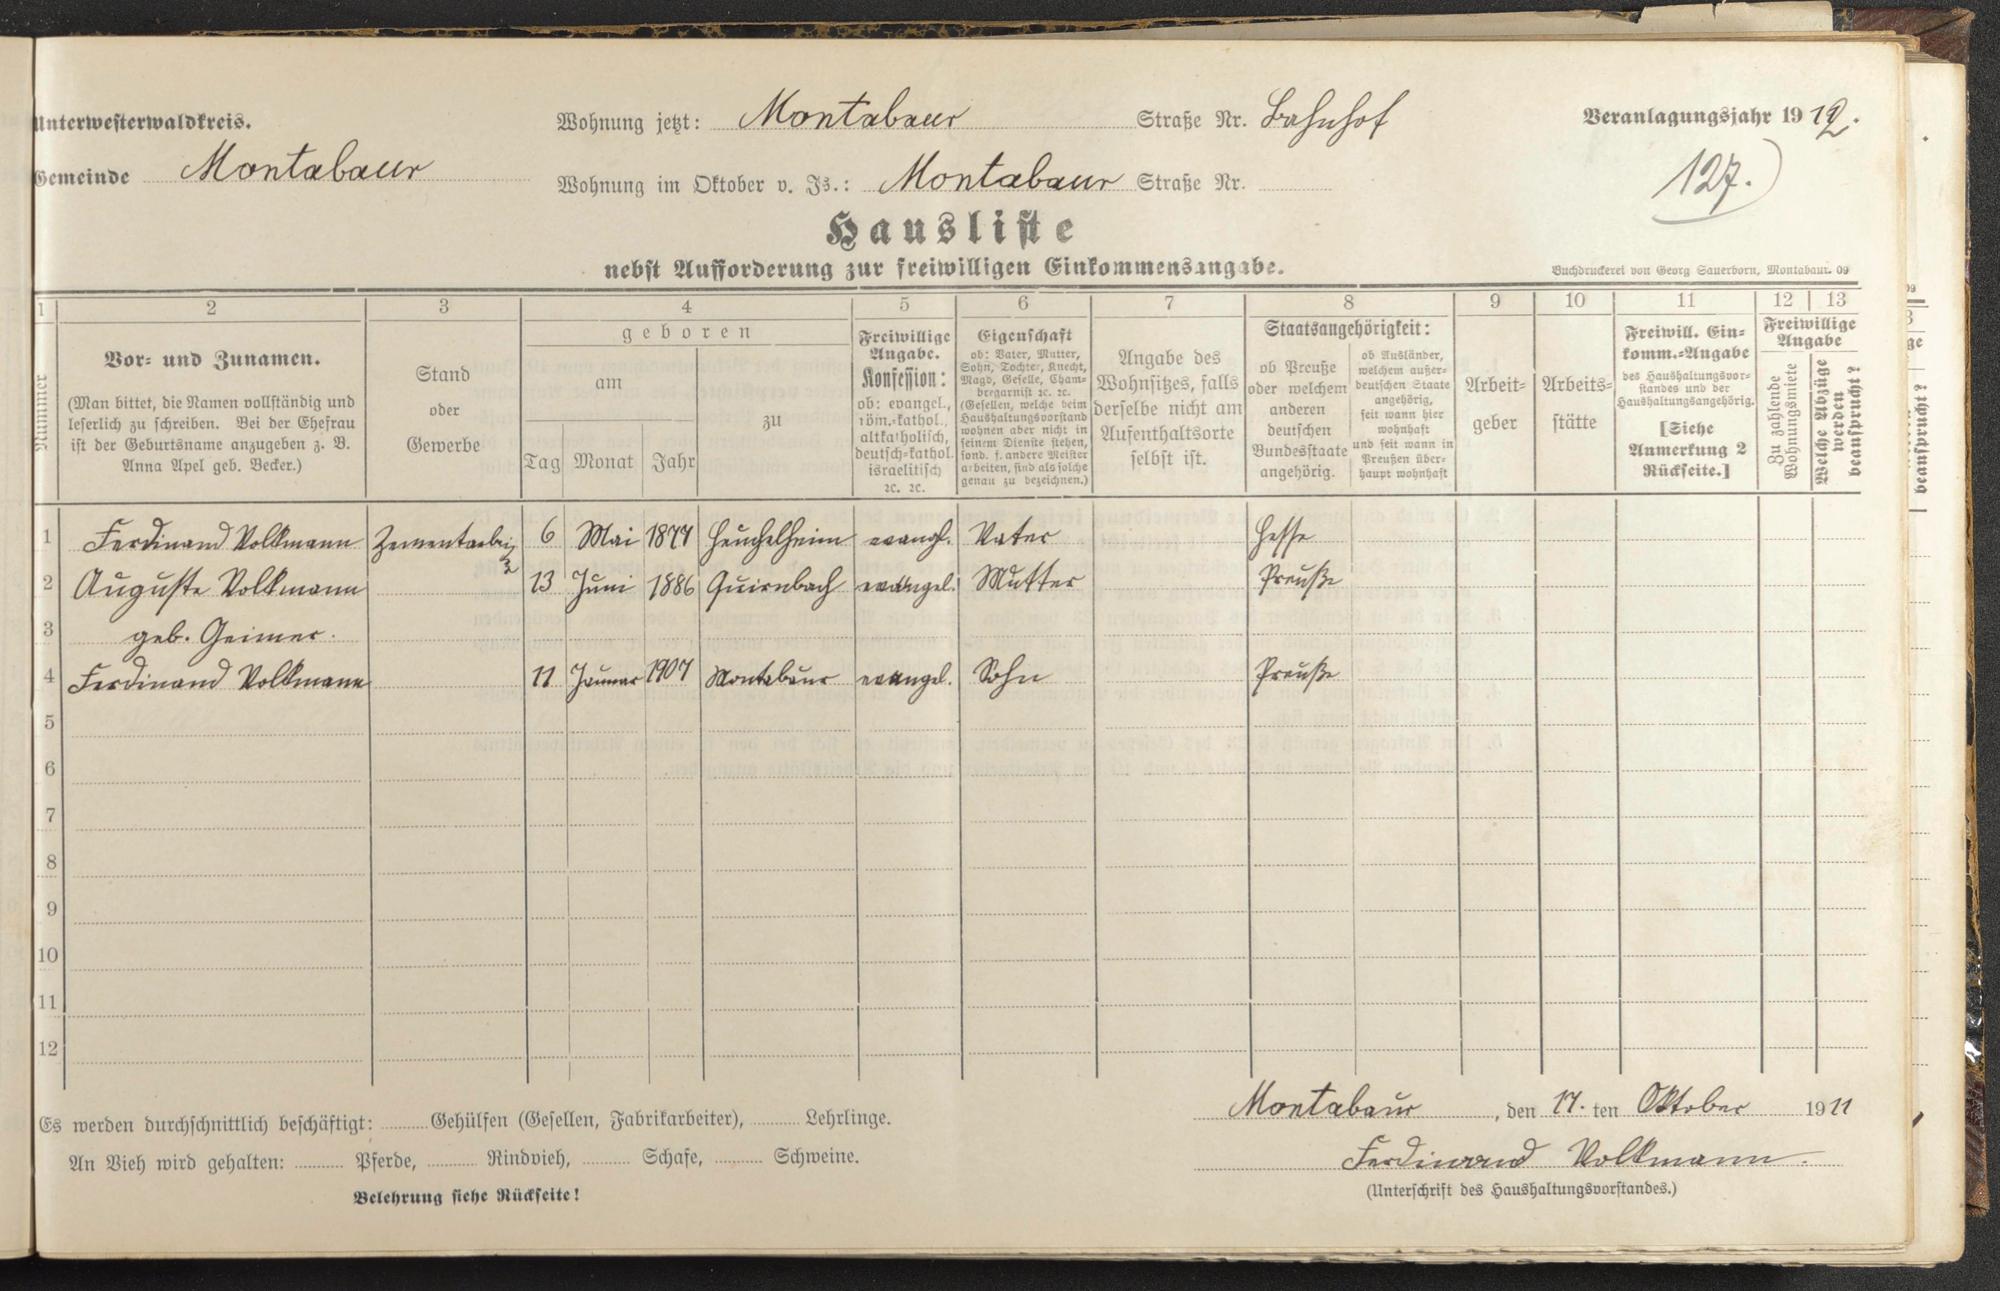 Unterwesterwaldkreis.
Wohnung jetzt: Montabaur Straße Nr. Bahnhof
Veranlagungsjahr 1912.
Gemeinde Montabaur
Wohnung im Oktober v. Js.: Montabaur Straße Nr.
127.
Hausliste
nebst Aufforderung zur freiwilligen Einkommensangabe.
Buchdruckerei von Georg Sauerborn, Montabaur. 09
1 2 3 4 5 6 7 8 9 10 11 12 13
Nummer
Vor- und Zunamen.
(Man bittet, die Namen vollständig und
leserlich zu schreiben. Bei der Ehefrau
ist der Geburtsname anzugeben z. B.
Anna Apel geb. Becker.)
Stand
oder
Gewerbe
geboren
am
Tag Monat Jahr
zu
Freiwillige
Angabe.
Konfession:
ob: evangel.,
röm.-kathol.,
altkatholisch,
deutsch-kathol.
israelitisch
ꝛc. ꝛc.
Eigenschaft
ob: Vater, Mutter,
Sohn, Tochter, Knecht,
Magd, Geselle, Cham-
bregarnist ꝛc. ꝛc.
(Gesellen, welche beim
Haushaltungsvorstand
wohnen aber nicht in
seinem Dienste stehen,
sond. f. andere Meister
arbeiten, sind als solche
genau zu bezeichnen.)
Angabe des
Wohnsitzes, falls
derselbe nicht am
Aufenthaltsorte
selbst ist.
Staatsangehörigkeit:
ob Preuße
oder welchem
anderen
deutschen
Bundesstaate
angehörig.
ob Ausländer,
welchem außer-
deutschen Staate
angehörig,
seit wann hier
wohnhaft
und seit wann in
Preußen über-
haupt wohnhaft
Arbeit-
geber
Arbeits-
stätte
Freiwill. Ein-
komm.-Angabe
des Haushaltungsvor-
standes und der
Haushaltungsangehörig.
[Siehe
Anmerkung 2
Rückseite.]
Freiwillige
Angabe
Zu zahlende
Wohnungsmiete
Welche Abzüge
werden
beansprucht?
1 Ferdinand Volkmann Zementarbeiz 6 Mai 1877 Heuchelheim evangl. Vater Hesse
2 Auguste Volkmann 13 Juni 1886 Quirnbach evangel. Mutter Preuße
3 geb. Geimer.
4 Ferdinand Volkmann 11 Januar 1907 Montabaur evangel. Sohn Preuße
5
6
7
8
9
10
11
12
Es werden durchschnittlich beschäftigt: Gehülfen (Gesellen, Fabrikarbeiter), Lehrlinge.
An Vieh wird gehalten: Pferde, Rindvieh, Schafe, Schweine.
Belehrung siehe Rückseite!
Montabaur, den 17. ten Oktober 1911
Ferdinand Volkmann.
(Unterschrift des Haushaltungsvorstandes.)